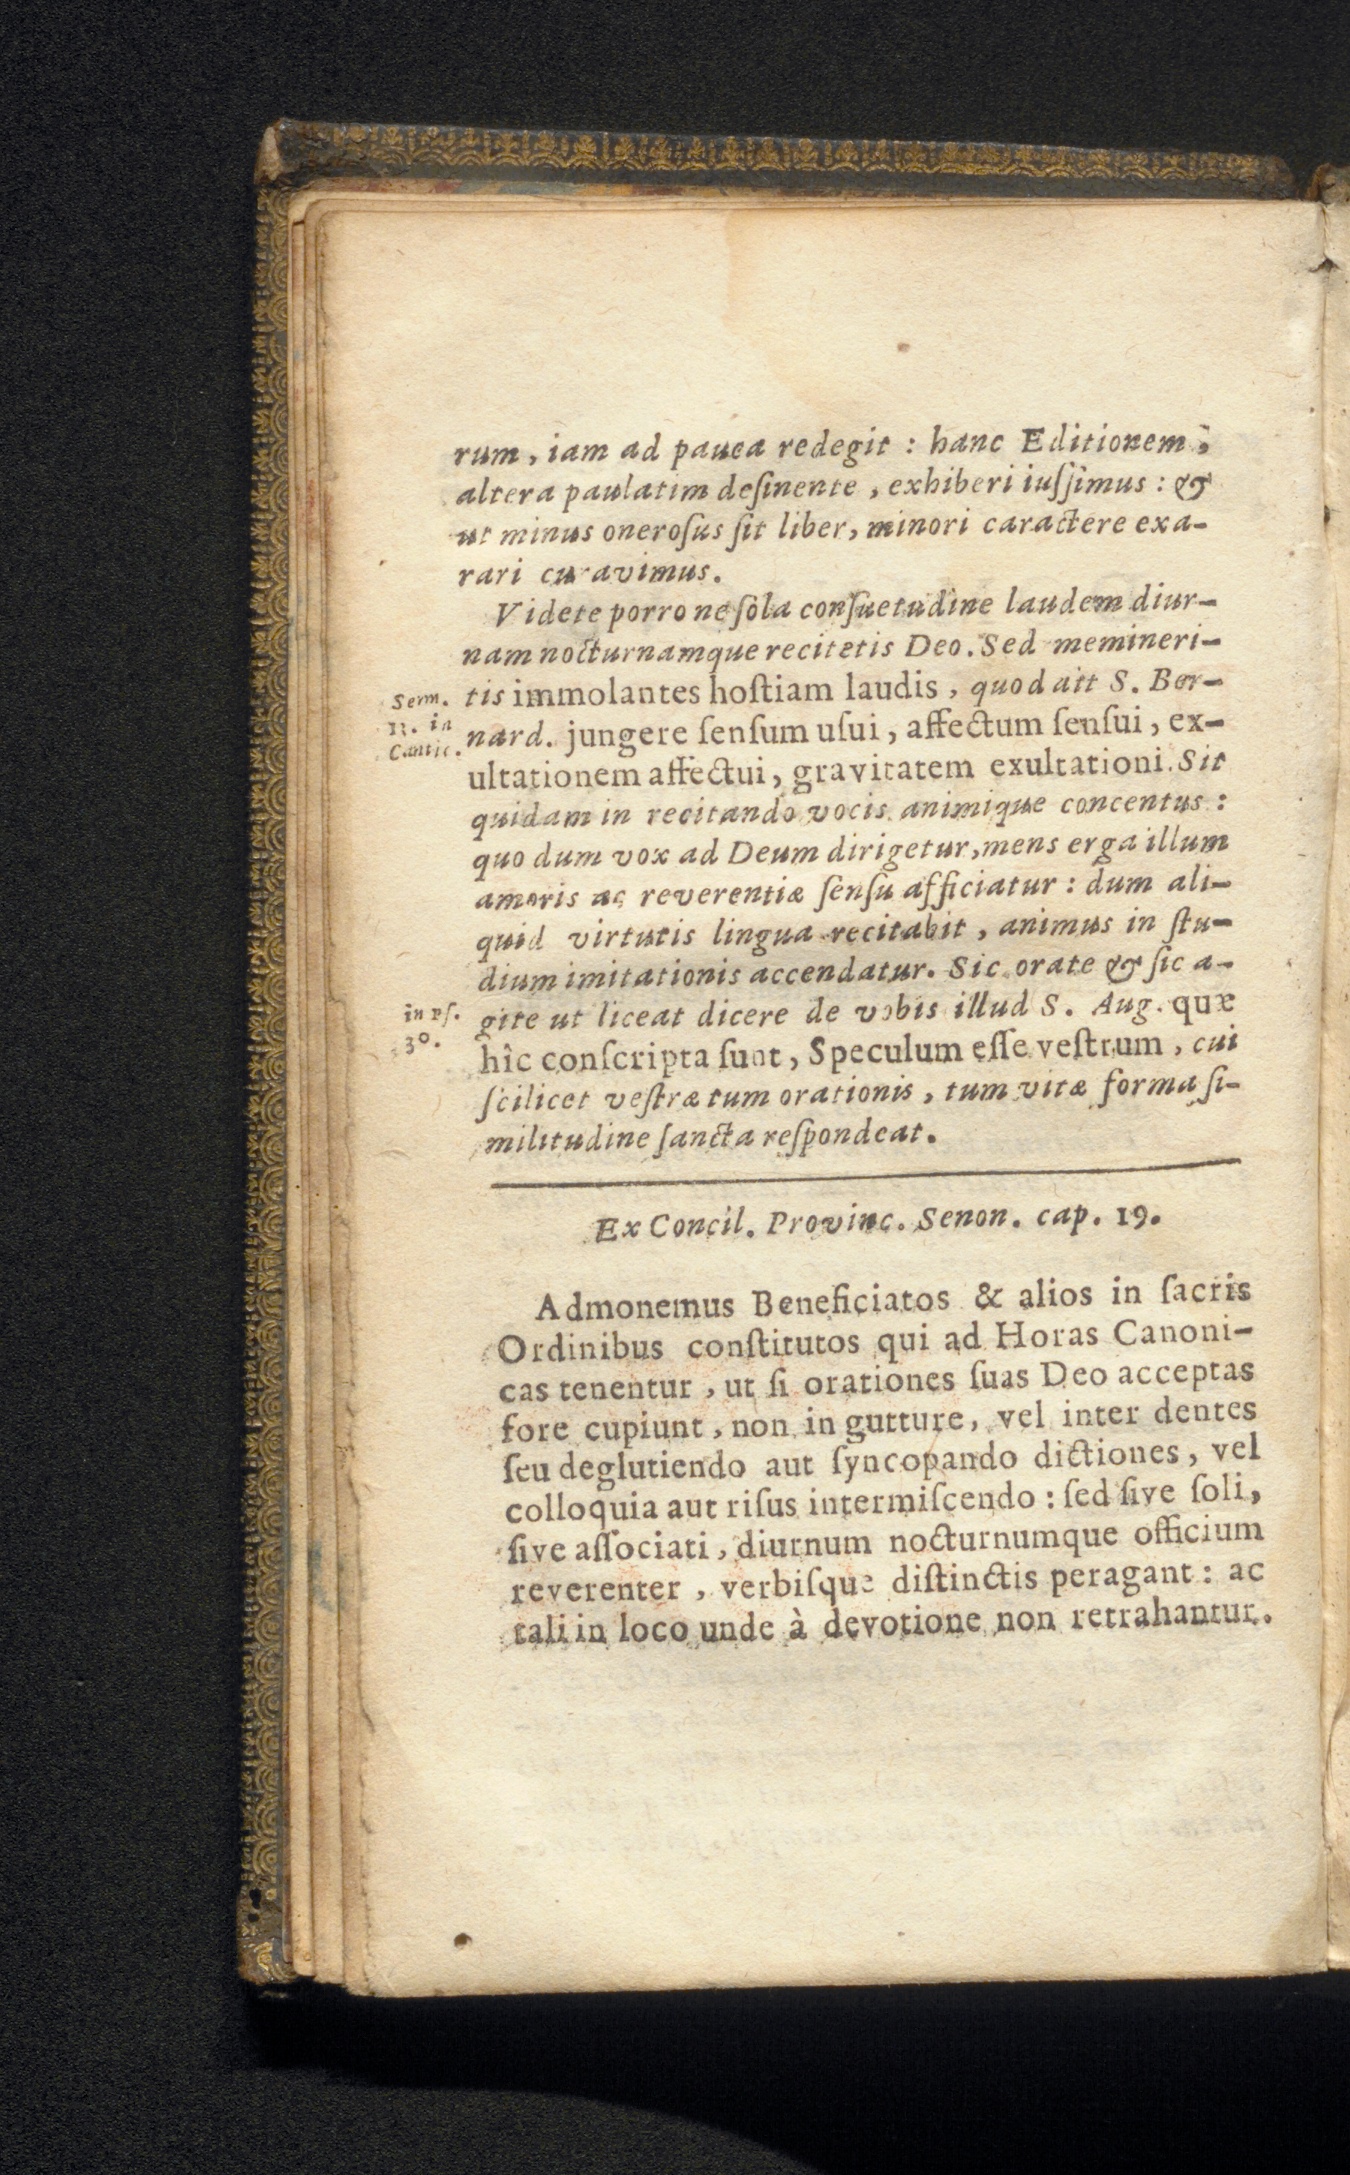 rum, iam ad pauca redegit : hanc Editionem,
altera paulatim deſinente, exhiberi iuſſimus : &
ut minus oneroſus ſit liber, minori caractere exa-
rari curavimus.
Videte porro ne ſola conſuetudine laudem diur-
nam nocturnamque recitetis Deo. Sed memineri-
Serm.
11. in
Cantic.
tis immolantes hoſtiam laudis, quod ait S. Ber-
nard. jungere ſenſum uſui, affectum ſenſui, ex-
ultationem affectui, gravitatem exultationi. Sit
quidam in recitando vocis animique concentus :
quo dum vox ad Deum dirigetur, mens erga illum
amoris ac reverentiæ ſenſu afficiatur : dum ali-
quid virtutis lingua recitabit, animus in ſtu-
dium imitationis accendatur. Sic orate & ſic a-
in pſ.
30.
gite ut liceat dicere de vobis illud S. Aug. quæ
hîc conſcripta ſunt, Speculum eſſe veſtrum, cui
ſcilicet veſtræ tum orationis, tum vitæ forma ſi-
militudine ſancta reſpondeat.
Ex Concil. Provinc. Senon. cap. 19.
Admonemus Beneficiatos & alios in ſacris
Ordinibus conſtitutos qui ad Horas Canoni-
cas tenentur, ut ſi orationes ſuas Deo acceptas
fore cupiunt, non in gutture, vel inter dentes
ſeu deglutiendo aut ſyncopando dictiones, vel
colloquia aut riſus intermiſcendo : ſed ſive ſoli,
ſive aſſociati, diurnum nocturnumque officium
reverenter, verbiſque diſtinctis peragant : ac
tali in loco unde à devotione non retrahantur.